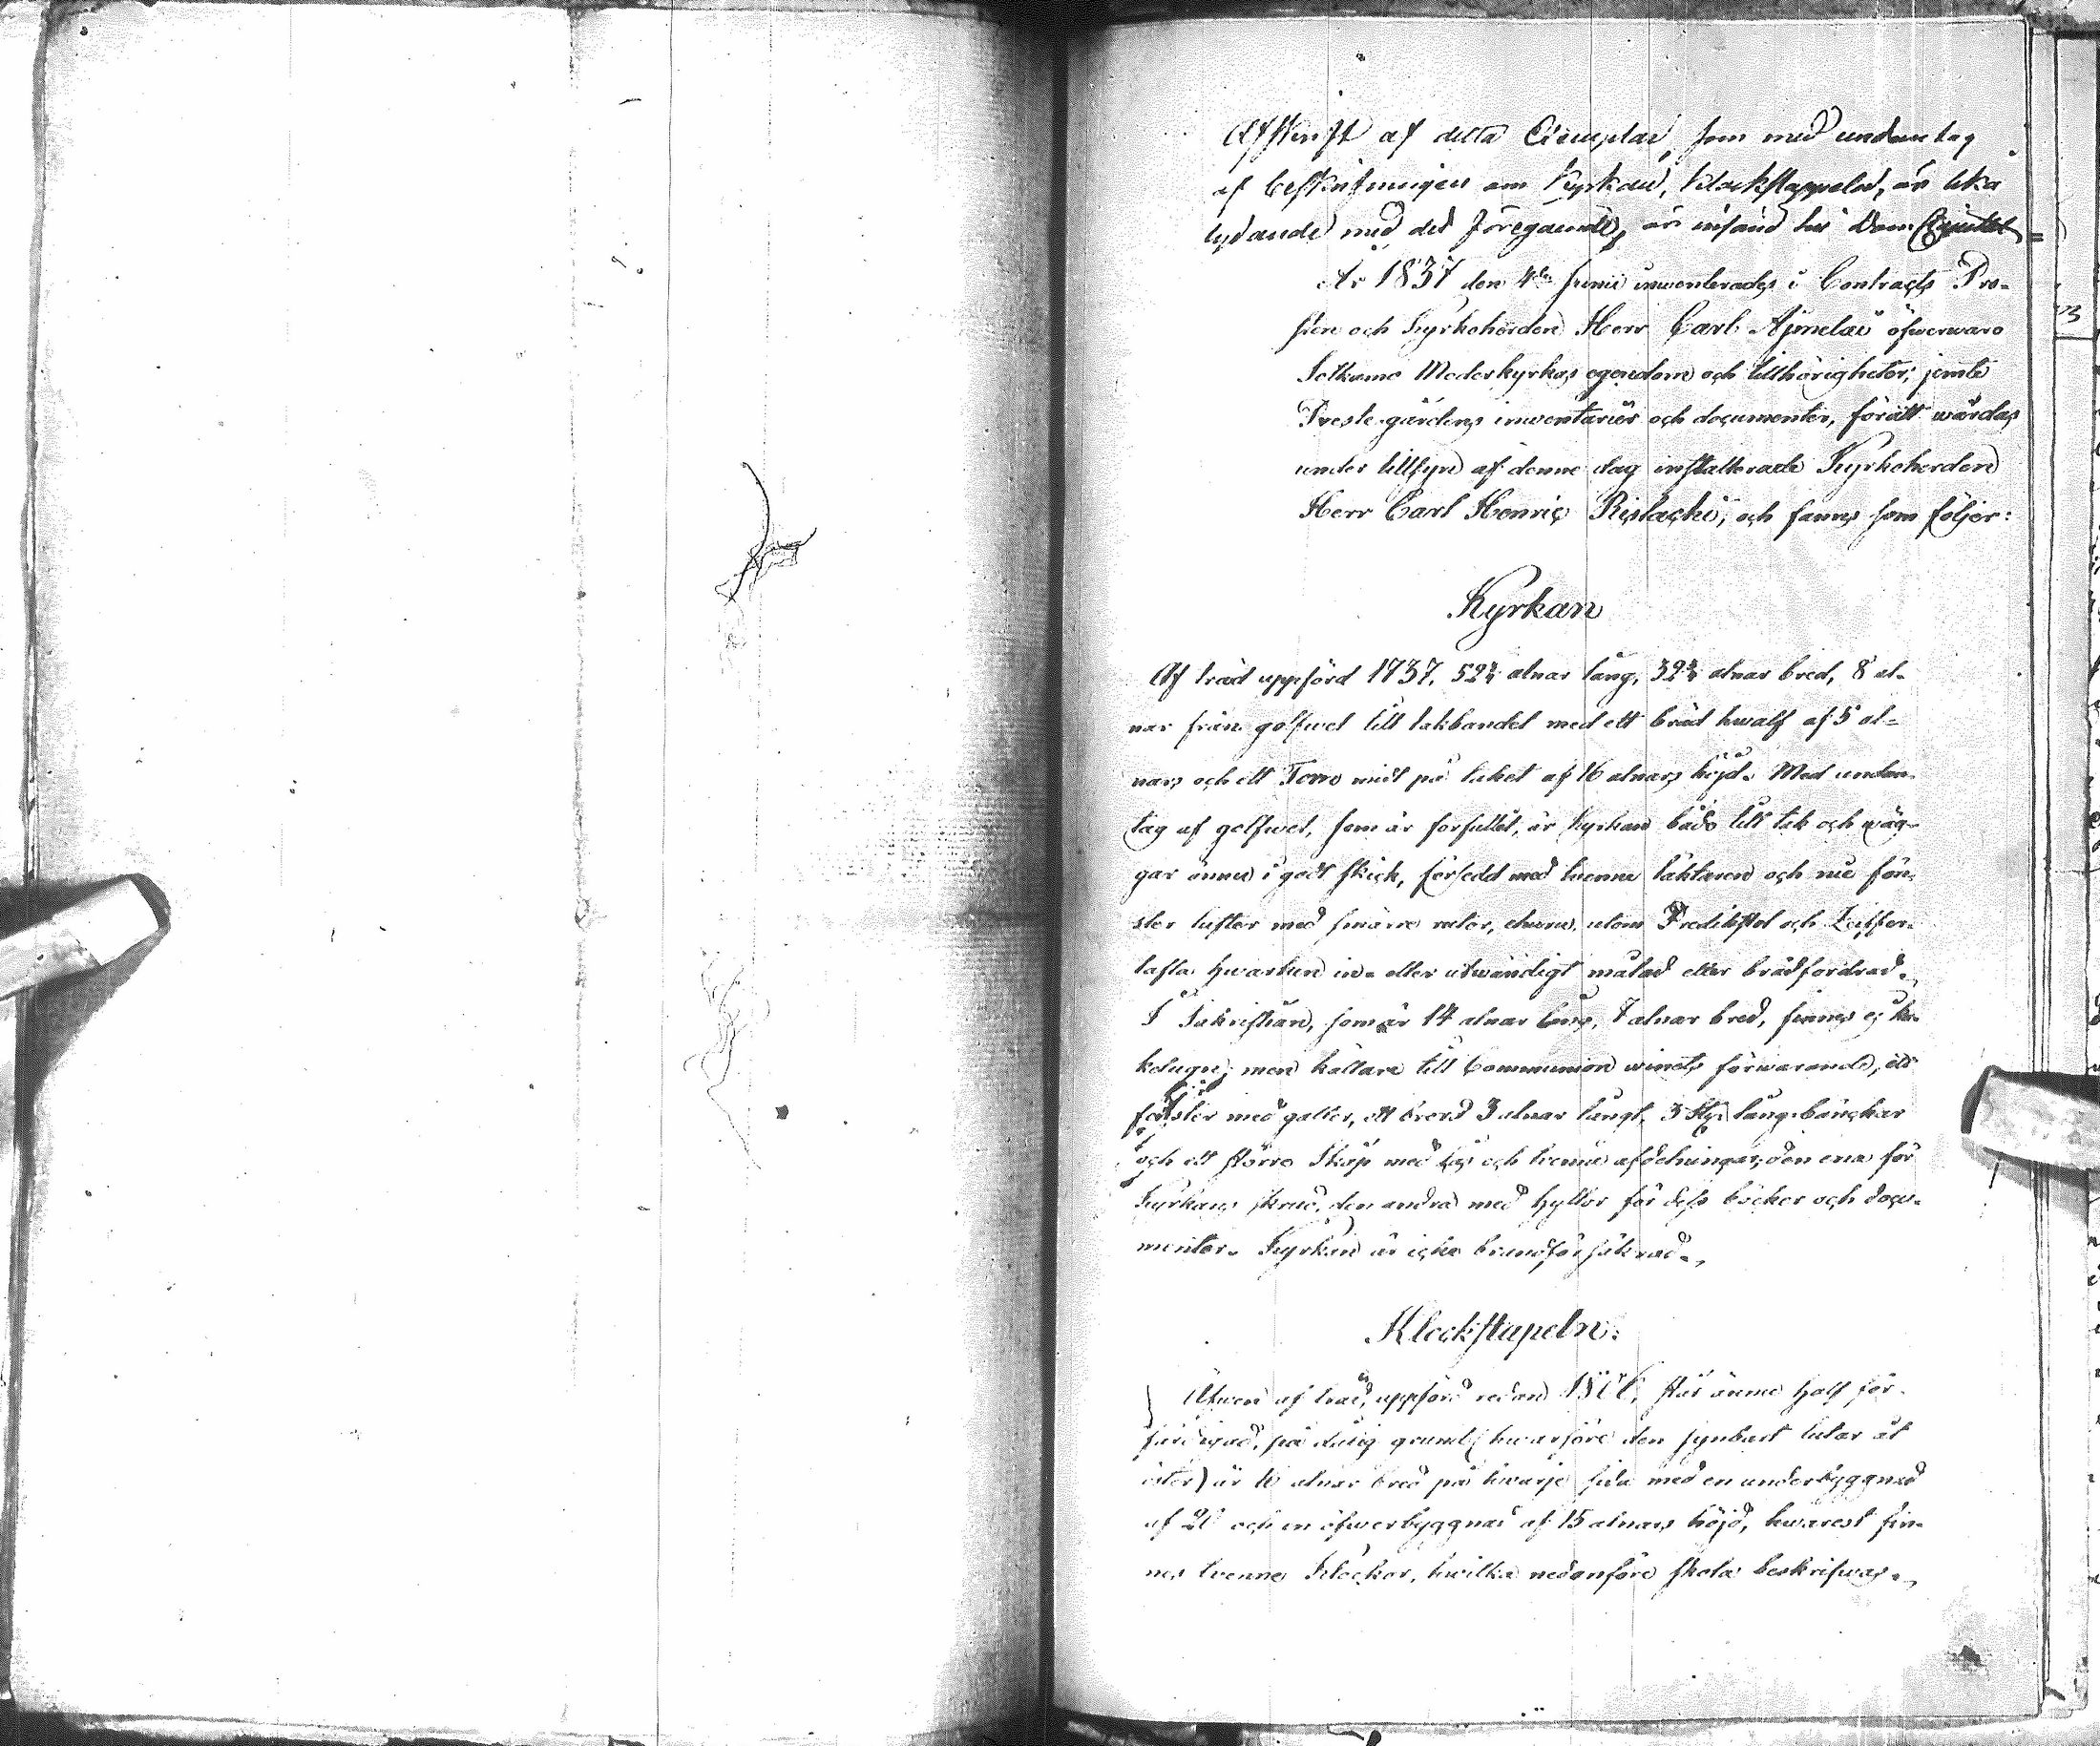 Afskrift af detta Exemplar, som med undantag
af beskrifningen om Kyrkan, Klockstappeln, är lika
lydande med det föregående, är insänd till Dom Capitlet
År 1837 den 4de Junii inwenterades i Contracts Pro-
sten och Kyrkoherden Herr Carl Ajmelæi öfwerwaro
Sotkamo Moderkyrkas egendom och tillhörigheter; jemte
Prestegårdens inwentarier och documenter, förätt wårdas
under tillsyn af denne dag installerade Kyrkoherden
Herr Carl Henric Rislachi, och fanns som följer:
Kyrkan
Af träd uppförd 1737, 52¾ alnar lång, 32¾ alnar bred, 8 al-
nar från golfwet till takbandet med ett bräd hwalf af 5 al-
nars och ett Torn midt på taket af 16 alnars höjd. Med undan-
tag af golfwet, som är förfallet, är Kyrkan både till tak och wäg-
gar ännu i godt skick, försedd med tvenne läktaren och nie fön-
ster lufter med smärre rutor, ehuru, utom Predikstol och
tafla hwarken in- eller utwändigt målad eller brädfordrad.
I Sakristian, som är 14 alnar lång, 7 alnar bred, finnes ej ka-
kelugn; men källare till Communion winets förwarande, ett
fönster med galler, ett bord 3 alnar långt, 3 St. lång bänckar
och ett större Skåp med lås och tvenne afdelningar; den ena för
Kyrkans skrud, den andra med hyllor för dess böcker och docu-
menter. Kyrkan är icke brandförsäkrad.
Klockstapeln:
Äfwen af träd, uppförd redan står ännu half för-
färdigad, på dålig grund (hwarföre den synbart lutar åt
öster) är 10 alnar bred på hwarje sida med en underbyggnad
af 20 och en öfwerbyggnad af 15 alnars höjd, hwarest fin-
nes tvenne Klockor, hwilka nedanföre skola beskrifwas.